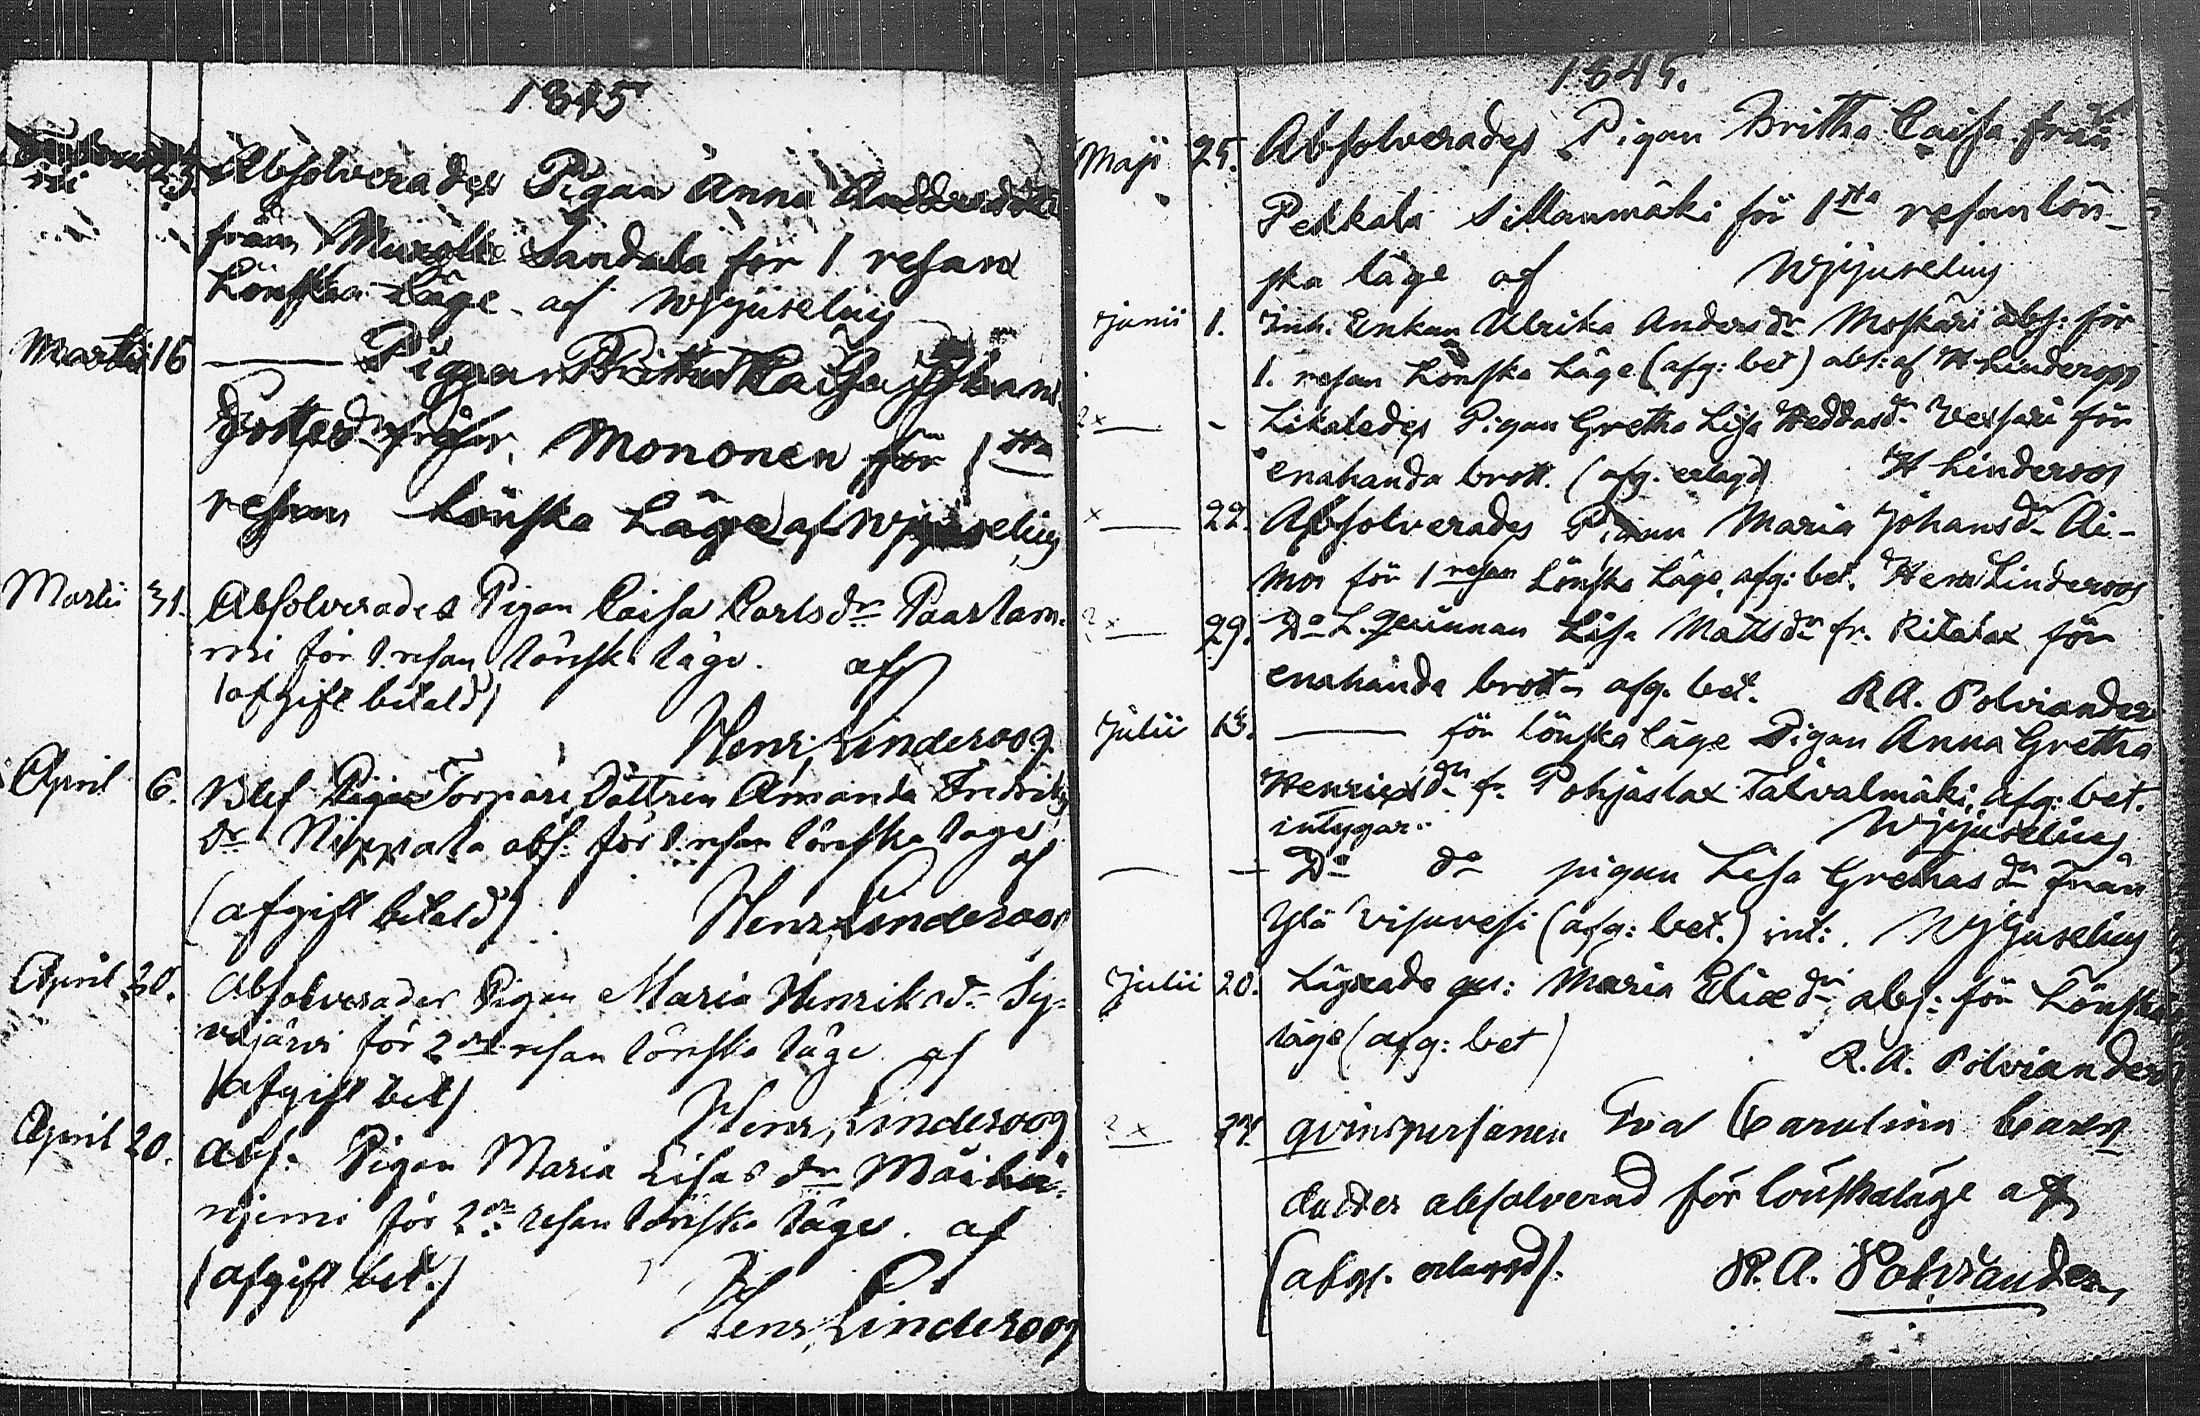 1845
23 Absolverades Pigan Anna Andersdotter
från Sandala för 1 resan
Lönska Läge af Wjjuselius
Martii 16 — Pigan Britta Caisa Johans
dotter från Mononen för 1sta
resan Lönska Läge af Wjjuselius
Martii 31. Absolverades Pigan Caisa Carlsdr Paarlam-
mi för 1. resan lönsk. läge. af
(afgift betald)
Henr. Linderoos.
April 6. Blef Torpare Dottren Amanda Fredriks
dr Nirppala abs: för 1. resan lönska läge
af
(afgift betald) Henr. Linderoos
April 20. Absolverades Pigan Maria Henriksdr Sy-
väjärvi för 2dra resan lönska läge af
(afgift bet) Henr. Linderoos
April 20. Abs: Pigan Maria Lisas dr
niemi för 2dra resan lönska läge. af
(afgift bet.)
Henr. Linderoos
1845.
Maji 25. Absolverades Pigan Britha Caisa från
Pekkala Sillanmäki för 1sta resan lön-
ska läge af Wjjuselius
Junii 1. Inh. Enkan Ulrika Andersdr Moskari abs: för
1. resan Lönska Läge (afg: bet) abs: af H Linderoos
2x — - Likaledes Pigan Gretha Lisa Heddasdr för
enahanda brott. (afg. erlagd) H Linderoos
x — 22. Absolverades Pigan Maria Johansdr Ai-
mos för 1 resan Lönska Läge. afg: bet. Henr Linderoos
2x — 29. Do L. qvinnan Lisa Mattsdr fr. Ritalax för
enahanda brott afg. bet. R.A. Polviander
Julii 13. — för Lönska läge Pigan Anna Gretha
Henricsdr fr. Pohjaslax Talvalmäki, afg: bet.
intygar. Wjjuselius
— - Do do pigan Lisa Grethas dr från
Ylä Visuvesi (afg: bet.) int: Wjjuselius
Julii 20. Lägrade qv: Maria Eliædr abs: för Lönska
läge (afg: bet)
R.A. Polviander
2x — 27. qvinspersonen Eva Carolina
absolverad för lönskaläge af
(afg. erlagd). R.A. Polviander